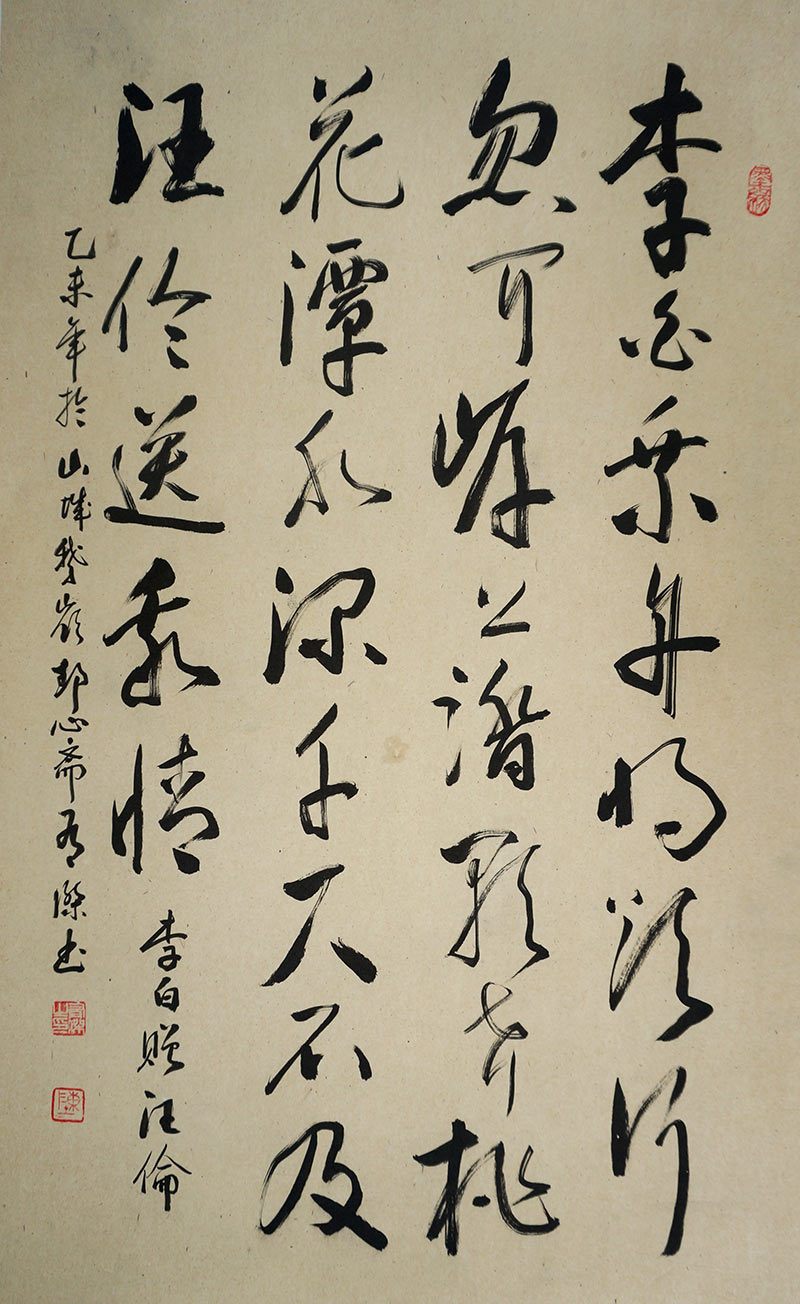 李白乘舟将欲行
忽聞岸上踏歌聲桃
花潭水深千尺不及
汪倫送我情 李白贈汪倫
乙未年於山城鵝嶺心斋有傑书